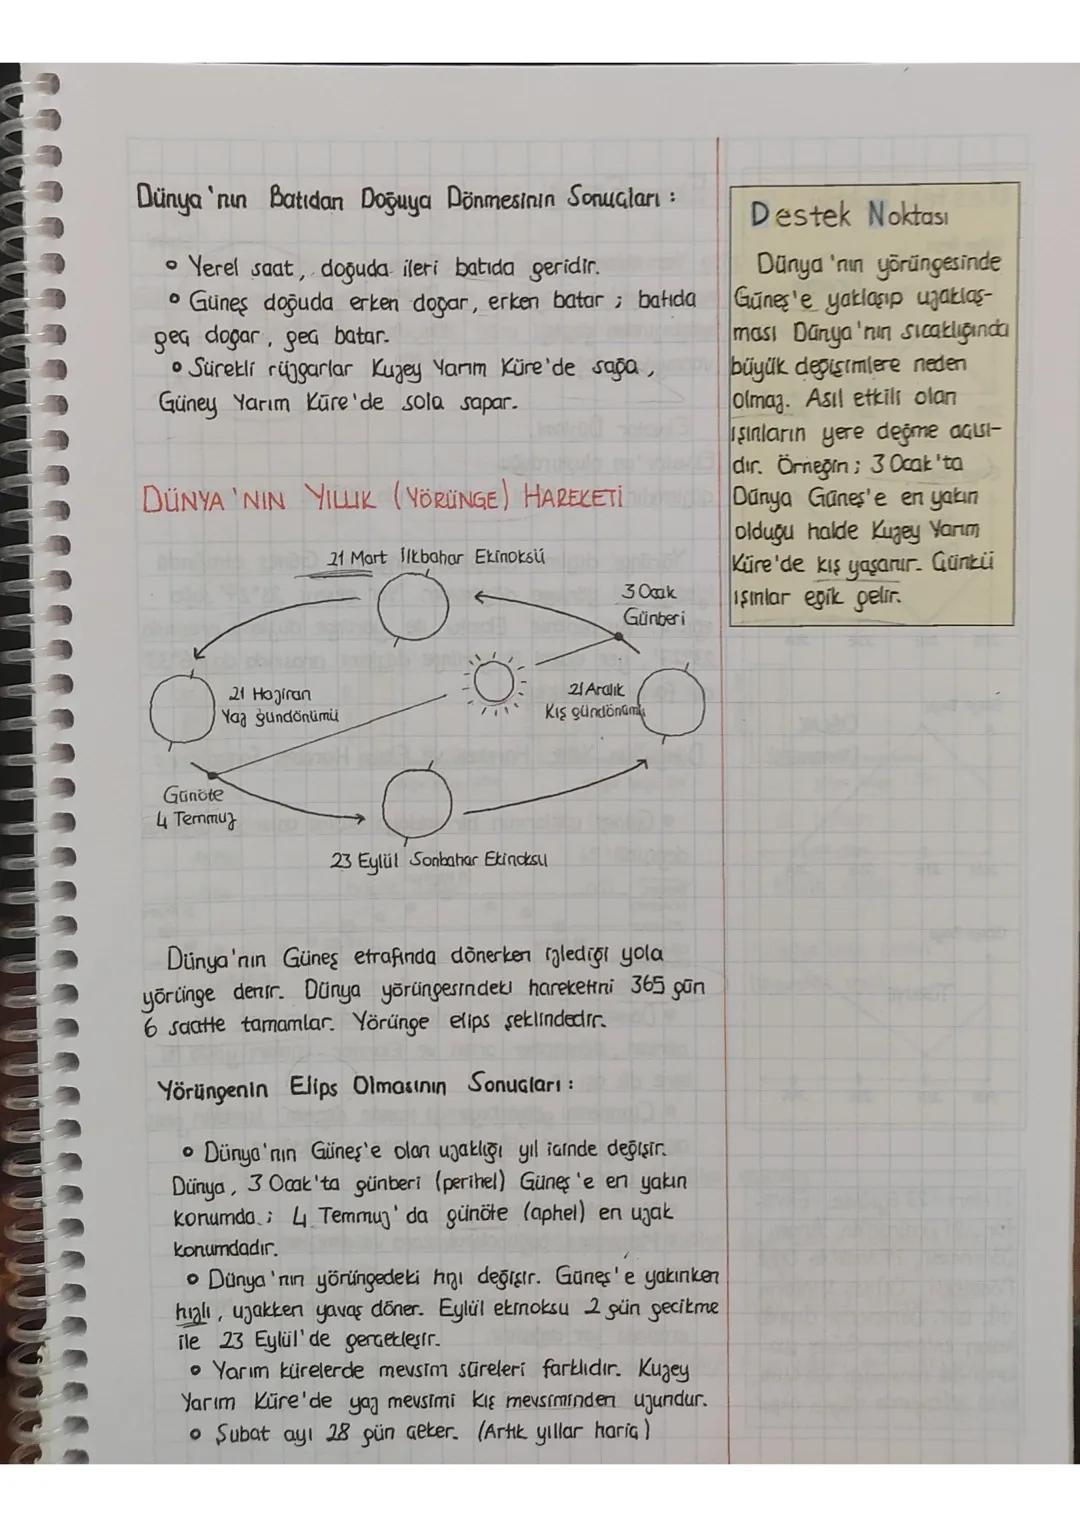 Dünya'nın Batıdan Doğuya Dönmesinin Sonuçları :
• Yerel saat, doğuda ileri batıda geridir.
• Güneş doğuda erken doğar, erken batar ; batıda
geç doğar, geç batar.
• Sürekli rüzgarlar Kuzey Yarım Küre'de sağa,
Güney Yarım Küre'de sola sapar.
DÜNYA'NIN YILLIK (YÖRÜNGE) HAREKETİ
21 Mart İlkbahar Ekinoksü
3 Ocak
Günberi
21 Haziran
Yaz gündönümü
21 Aralık
Kış gündönümü
Günöte
4 Temmuz
23 Eylül Sonbahar Ekinoksu
Dünya'nın Güneş etrafında dönerken izlediği yola
yörünge denir. Dünya yörüngesindeki hareketini 365 gün
6 saatte tamamlar. Yörünge elips şeklindedir.
Yörüngenin Elips Olmasının Sonuçları :
• Dünya'nın Güneş'e olan uzaklığı yıl içinde değişir.
Dünya, 3 Ocak'ta günberi (perihel) Güneş'e en yakın
konumda ; 4 Temmuz'da günöte (aphel) en uzak
konumdadır.
• Dünya'nın yörüngedeki hızı değişir. Güneş'e yakınken
hızlı, uzakken yavaş döner. Eylül ekinoksu 2 gün gecikme
ile 23 Eylül'de gerçekleşir.
• Yarım kürelerde mevsim süreleri farklıdır. Kuzey
Yarım Küre'de yaz mevsimi kış mevsiminden uzundur.
• Şubat ayı 28 gün çeker. (Artık yıllar hariç)
Destek Noktası
Dünya'nın yörüngesinde
Güneş'e yaklaşıp uzaklaş-
ması Dünya'nın sıcaklığında
büyük değişimlere neden
olmaz. Asıl etkili olan
ışınların yere değme açısı-
dır. Örneğin ; 3 Ocak'ta
Dünya Güneş'e en yakın
olduğu halde Kuzey Yarım
Küre'de kış yaşanır. Çünkü
ışınlar eğik gelir.